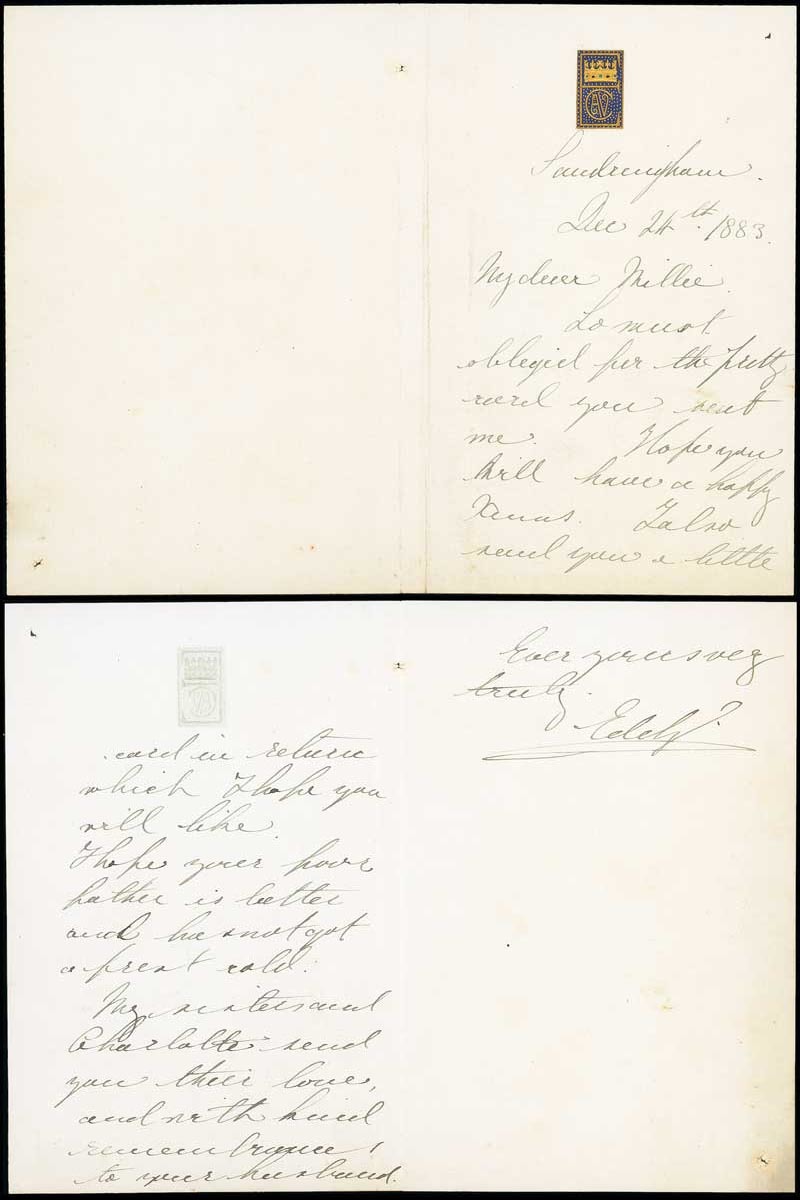 Sandringham.
Dec 24th. 1883.
My dear Millie.
So must
obliged for the pretty
card you sent
me. Hope you
will have a happy
Xmas. I also
send you a little
card in return
which I hope you
will like.
I hope your poor
father is better
and has not got
a fresh cold.
My sisters and
Charlotte send
you their love,
and with kind
remembrance,
to your husband.
Ever yours very
truly.
Eddy.